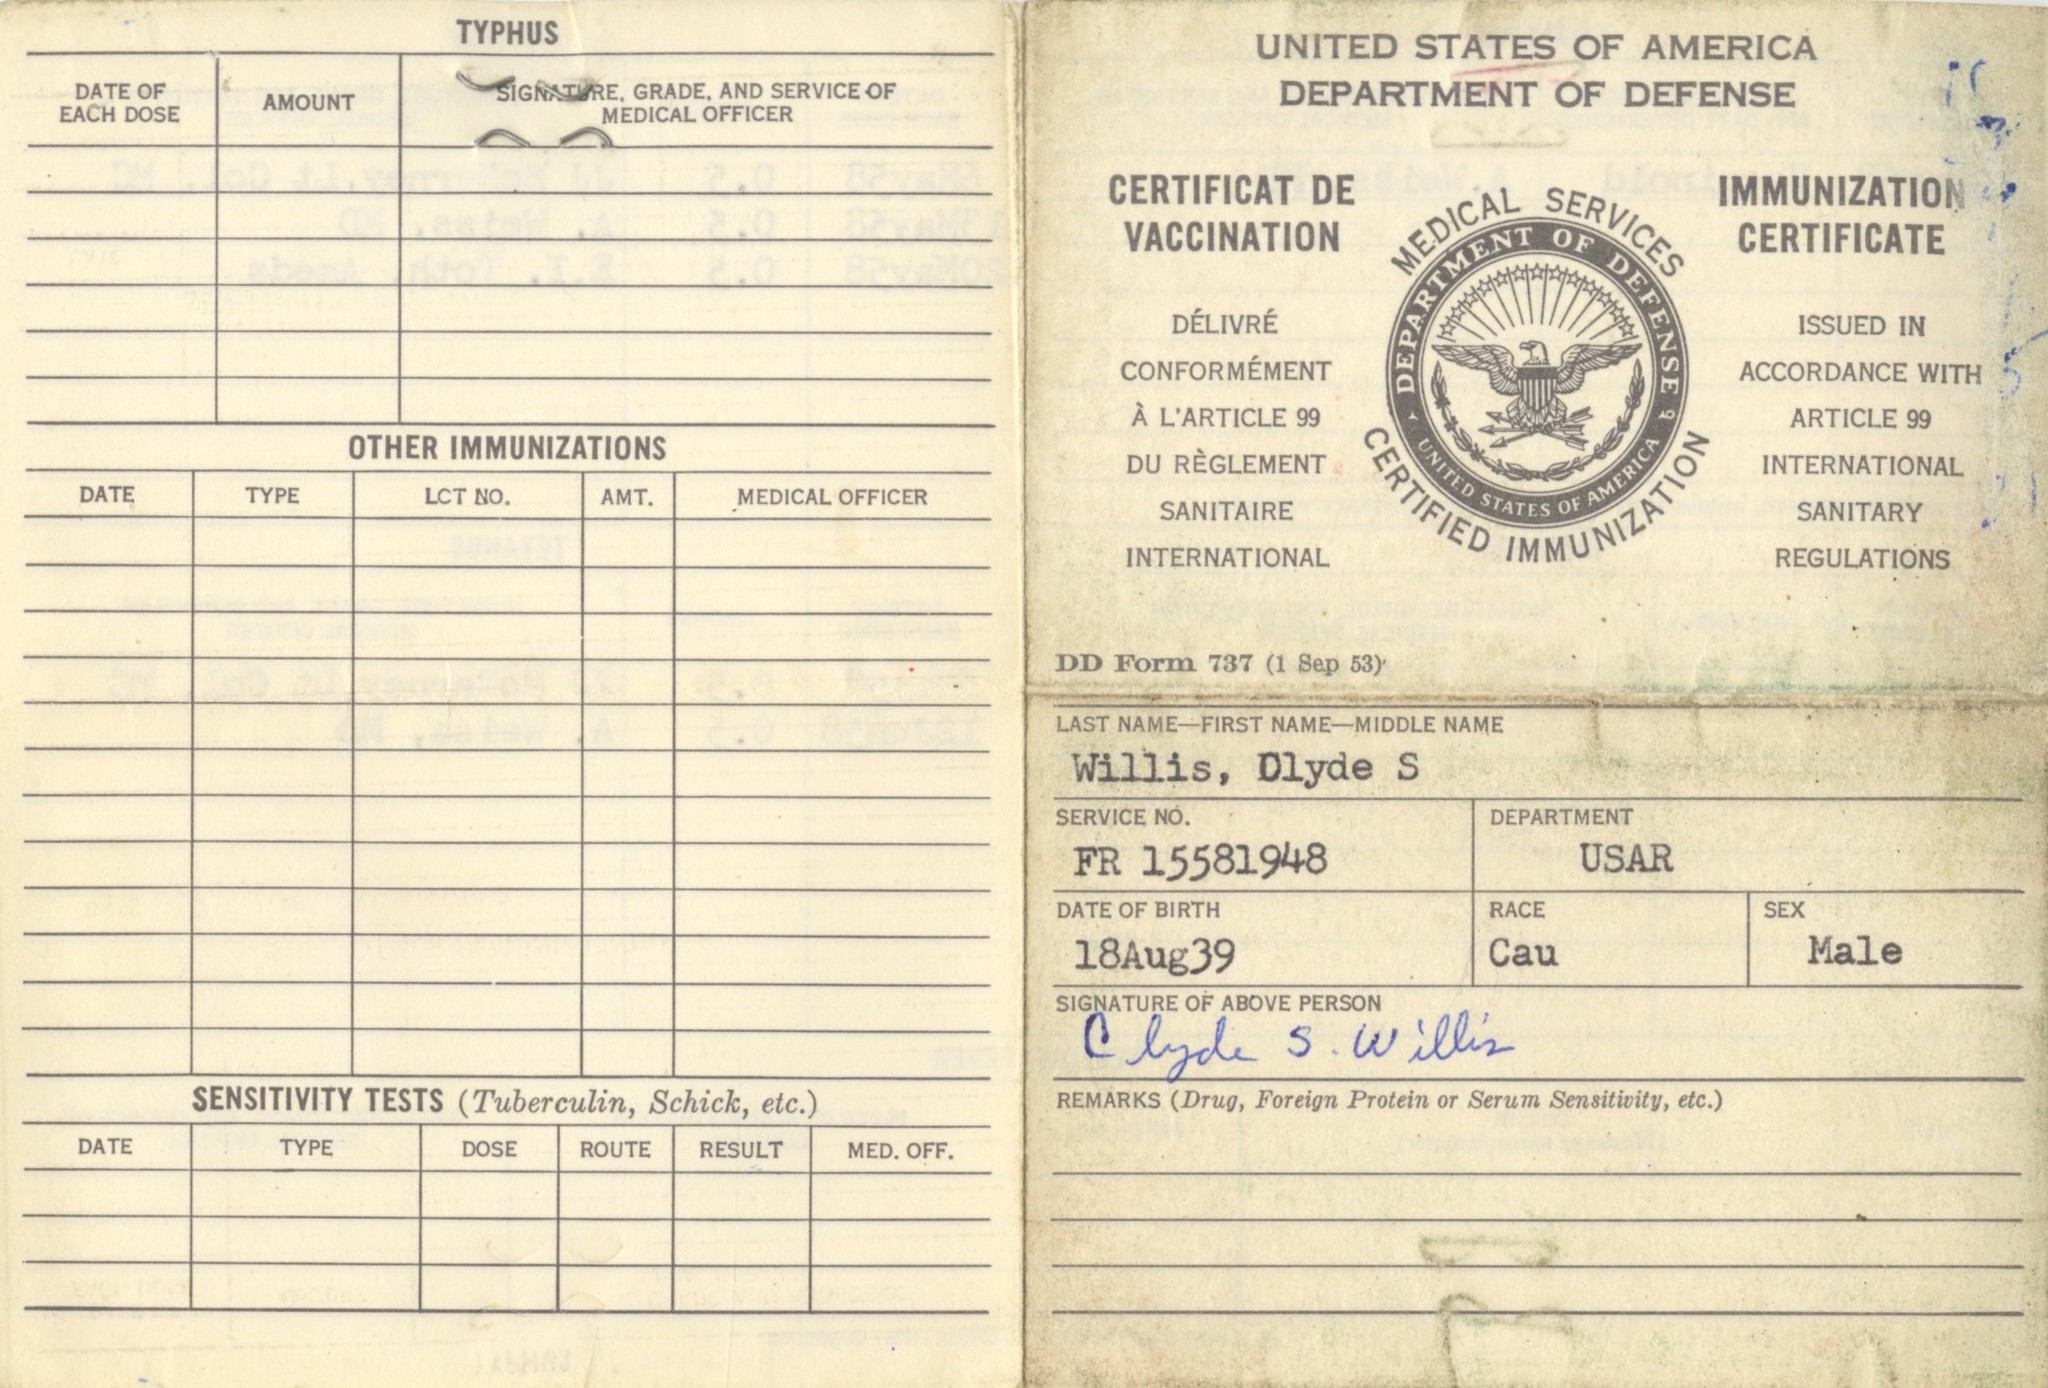 TYPHUS
DATE OF EACH DOSE
AMOUNT
SIGNATURE, GRADE, AND SERVICE OF MEDICAL OFFICER
OTHER IMMUNIZATIONS
DATE TYPE LCT NO. AMT. MEDICAL OFFICER
SENSITIVITY TESTS (Tuberculin, Schick, etc.)
DATE TYPE DOSE ROUTE RESULT MED. OFF.
UNITED STATES OF AMERICA
DEPARTMENT OF DEFENSE
CERTIFICAT DE
VACCINATION
DÉLIVRÉ
CONFORMÉMENT
À L'ARTICLE 99
DU RÈGLEMENT
SANITAIRE
INTERNATIONAL
MEDICAL SERVICES
DEPARTMENT OF DEFENSE
UNITED STATES OF AMERICA
CERTIFIED IMMUNIZATION
IMMUNIZATION
CERTIFICATE
ISSUED IN
ACCORDANCE WITH
ARTICLE 99
INTERNATIONAL
SANITARY
REGULATIONS
DD Form 737 (1 Sep 53)
LAST NAME—FIRST NAME—MIDDLE NAME
Willis, Clyde S
SERVICE NO.
FR 15581948
DEPARTMENT
USAR
DATE OF BIRTH
18Aug39
RACE
Cau
SEX
Male
SIGNATURE OF ABOVE PERSON
Clyde S. Willis
REMARKS (Drug, Foreign Protein or Serum Sensitivity, etc.)